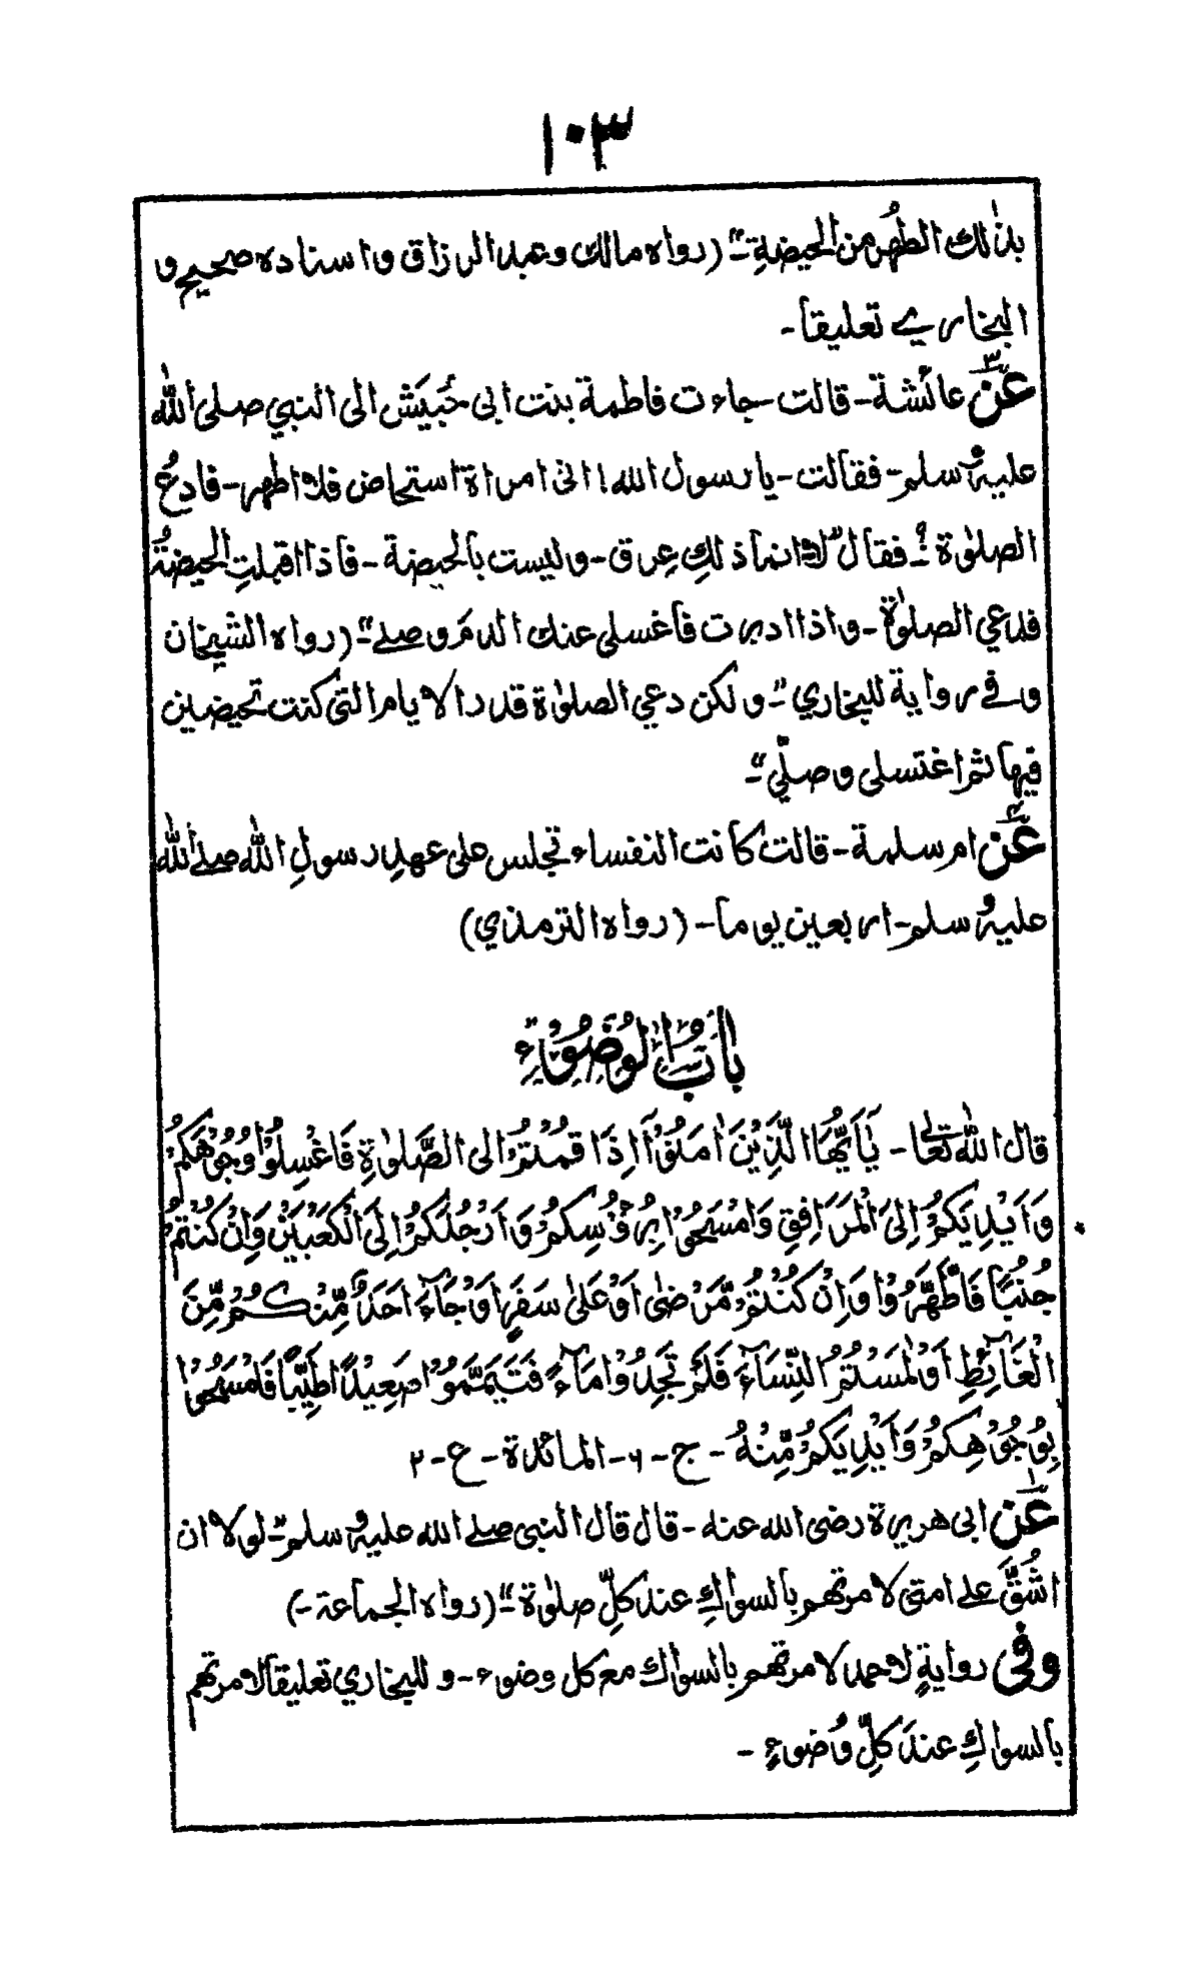 ۱۰۳
بذٰلك الطهُر من الحيضةِ-" (رواه مالك وعبد الرزاق واسناده صحيح و
البخاري تعليقا-
عَنْ ۳ عائشة- قالت جاءت فاطمة بنت ابى حُبَيَش الى النبي صلى اللّٰه
عليه وسلم- فقالت- يا رسول الله! انى امراة استحاض فلا اطهر- فادعُ
الصلوٰة؟- فقال "لا انما ذلكِ عِرق- وليست بالحيضة- فاذا اقبلتِ الحيضةُ
فدعي الصلوٰة- واذا ادبرت فاغسلى عنك الدمَ وصلے-" (رواه الشيخان
وفے رواية للبخاري-" ولكن دعي الصلوٰة قدر الايام التى كنت تحيضين
فيها ثم اغتسلى وصلّي-"
عَنْ ۴ ام سلمة- قالت كانت النفساء تجلس على عهدِ رسولِ اللّٰه صلے اللّٰه
عليه وسلم- اربعين يوما- (رواه الترمذي)
بَابُ الْوُضُوْءِ
قال اللّٰه تعالٰى- يٰٓاَيُّهَا الَّذِيْنَ اٰمَنُوْٓا اِذَا قُمْتُمْ الى الصَّلوٰةِ فَاغْسِلُوْا وُجُوْهَكُمْ
وَاَيْدِيَكُمْ اِلىَ الْمَرَافِقِ وَامْسَحُوْا بِرُءُوْسِكُمْ وَاَرْجُلَكُمْ اِلَى الْكَعْبَيْنِ وَاِنْ كُنْتُمْ
جُنُبًا فَاطَّهَّرُوْا وَاِنْ كُنْتُمْ مَّرْضٰى اَوْ عَلىٰ سَفَرٍ اَوْ جَآءَ اَحَدٌ مِّنْكُمْ مِّنَ
الْغَآئِطِ اَوْ لٰمَسْتُمُ النِّسَآءَ فَلَمْ تَجِدُوْا مَآءً فَتَيَمَّمُوْا صَعِيْدًا طَيِّبًا فَامْسَحُوْا
بِوُجُوْهِكُمْ وَاَيْدِيَكُمْ مِّنْهُ- ج-٦- المائدة- ع-٢
عَنْ ۱ ابى هريرة رضى الله عنه- قال قال النبي صلے الله عليه وسلم-" لولا ان
اشُقَّ علے امتى لامرتهم بالسواكِ عند كلِّ صلوٰة-" (رواه الجماعة-)
وفى روايةٍ لاحمد لامرتهم بالسواك مع كل وضوء- و للبخاري تعليقا لامرتهم
بالسواكِ عندَ كلِّ وُضوءٍ-